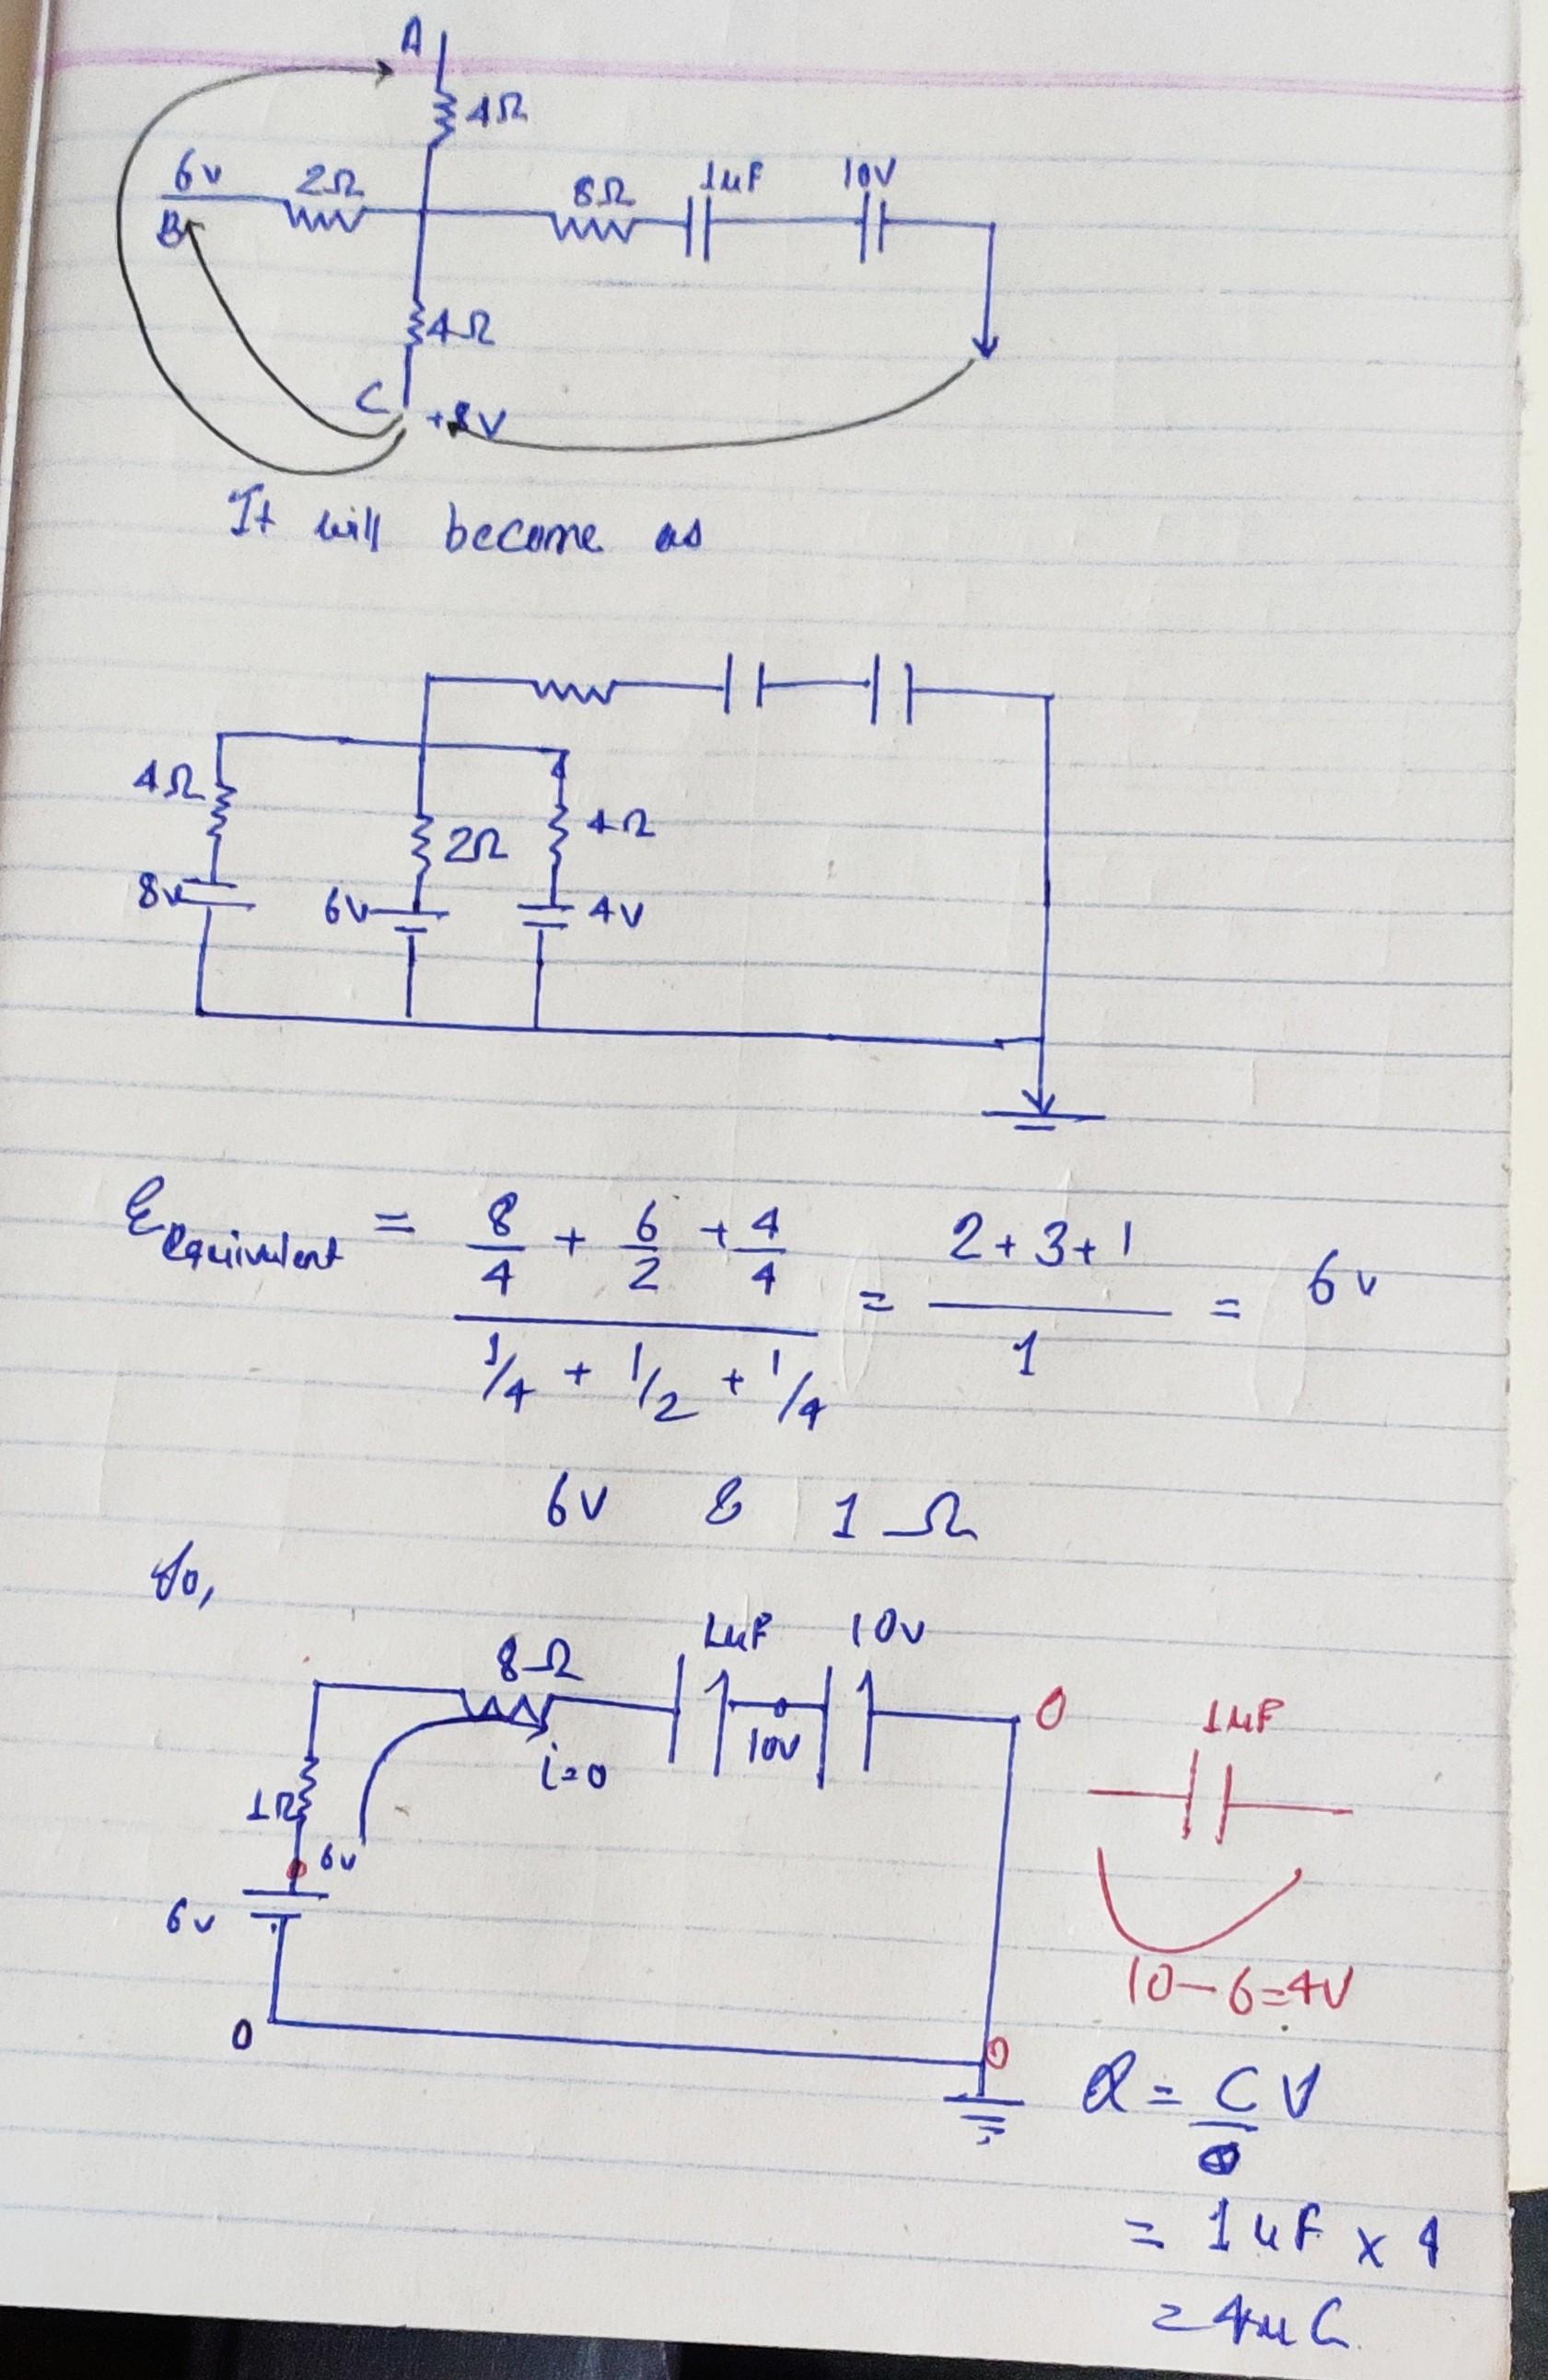 A
4Ω
6v 2Ω 8Ω 1μF 10V
B
4Ω
C +8V
It will become as
4Ω 2Ω 4Ω
8v 6v 4v
Equivalent = 8/4 + 6/2 + 4/4 / 1/4 + 1/2 + 1/4 = 2+3+1 / 1 = 6v
6v & 1Ω
So,
8Ω 1μF 10v
10V
i=0
0
1Ω
6v
6v
0
0
1μF
10-6=4V
Q = CV
= 1μF × 4
= 4μC